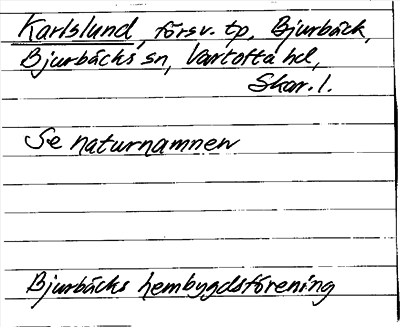 Karlslund, försv. tp, Bjurbäck,
Bjurbäcks sn, Vartofta hd,
Skar. l.
Se naturnamnen
Bjurbäcks hembygdsförening